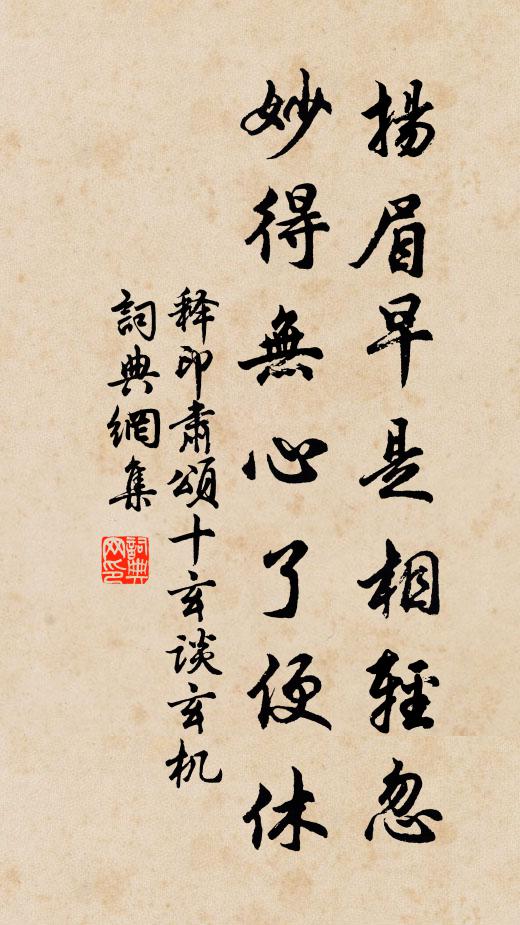 揚眉早是相輕忽
妙得無心了便休
释印肃頌十玄谈玄机
詞典網集
詞典
网印